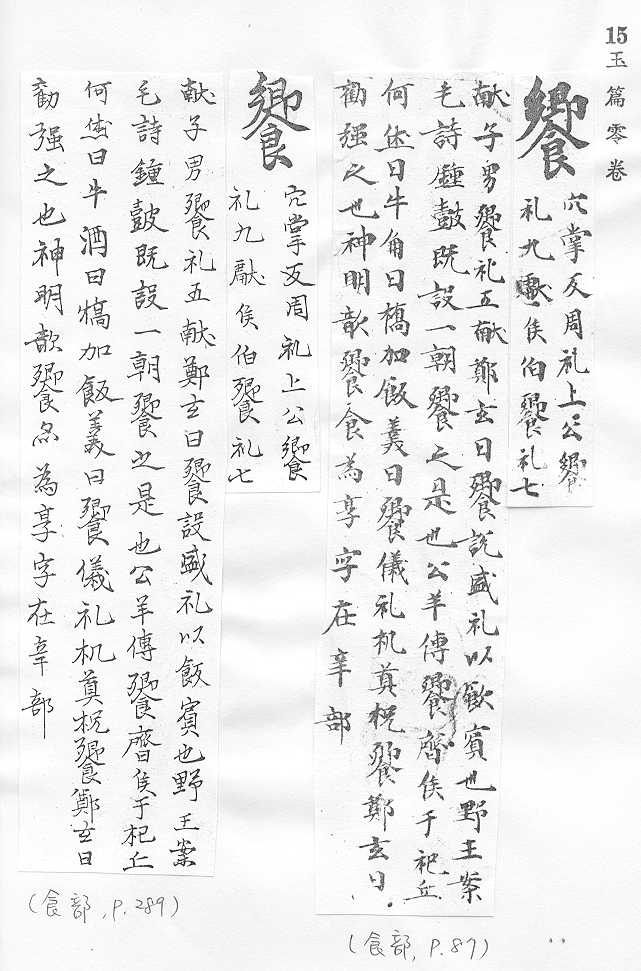 15 玉篇零卷
饗
穴掌反周礼上公饗
礼九献侯伯饗礼七
献子男饗礼五献鄭玄曰饗設盛礼以飲賓也野王案
毛詩鍾鼓既設一朝饗之是也公羊傳饗齊侯于祀丘
何休曰牛角曰犒加飯義曰饗儀礼机奠祝饗鄭玄曰
勸强之也神明歆饗食為享字在辛部
(食部, P.87)
饗
穴掌反周礼上公饗
礼九献侯伯饗礼七
献子男饗礼五献鄭玄曰饗設盛礼以飯賓也野王案
毛詩鍾鼓既設一朝饗之是也公羊傳饗齊侯于杞丘
何休曰牛酒曰犒加飯義曰饗儀礼机奠祝饗鄭玄曰
勸强之也神明歆饗為享字在辛部
(食部, P.289)